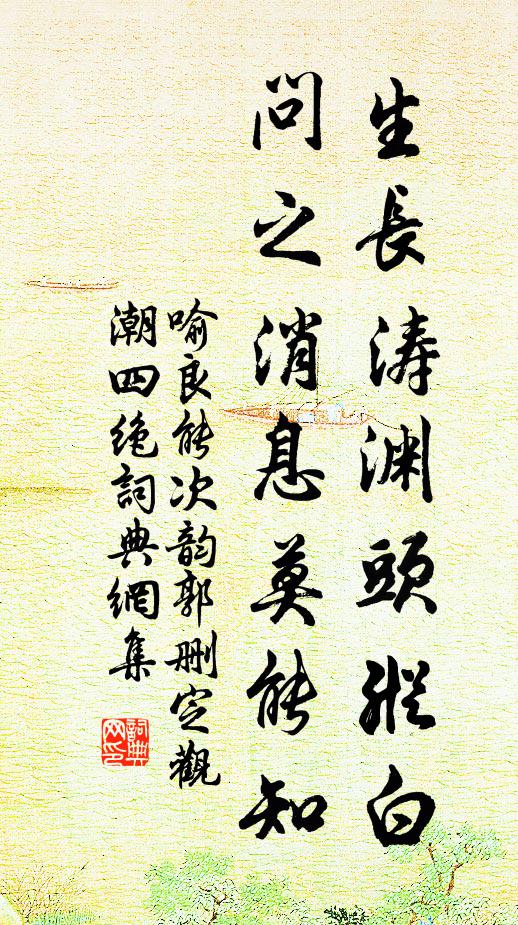 生長涛渊頭縱白
問之消息莫能知
喻良能次韵郭删定觀
潮四绝詞典網集
詞典网印